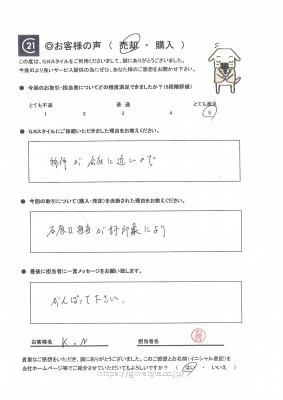 21 ◎お客様の声（ 売却 ・ 購入 ）
この度は、G.Nスタイルをご利用くださいまして、誠にありがとうございました。
今後のより良いサービス提供の為にぜひ、あなた様のご感想をお聞かせ下さい。
● 今回のお取引・担当者についてどの程度満足できましたか？（5段階評価）
とても不満 普 通 とても満足
1 2 3 4 5
● G.Nスタイルにご依頼いただきました理由をお教えください。
物件が会社に近いので
● 今回の取引について（購入・売却）を決断された理由をお教えください。
石原口担当が好印象により
● 最後に担当者に一言メッセージをお願い致します。
がんばって下さい。
お客様名 K.N 担当者名
貴重なご感想をいただき、誠にありがとうございました。このご感想とお名前（イニシャル表記）を
当社ホームページ等でご紹介させていただいてもよろしいですか？ （ はい ・ いいえ ）